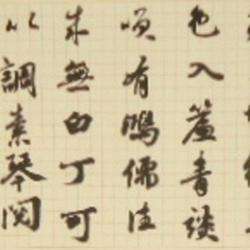 色入簾青談
咲有鴻儒往
來無白丁可
以調素琴閱